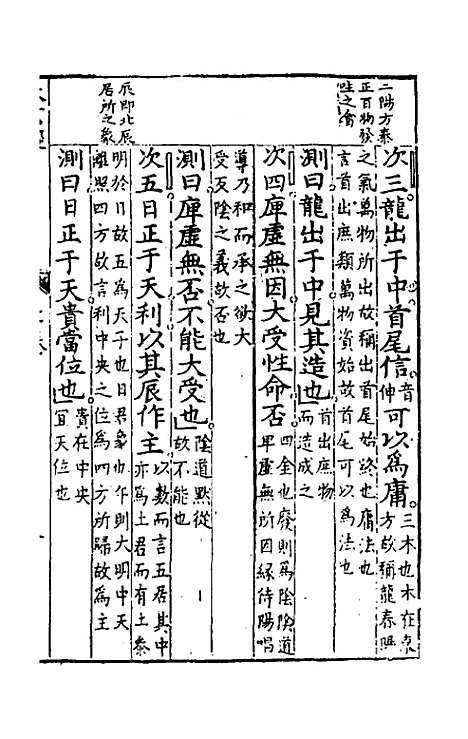 二陽方泰
正百物發
生之會
次三龍出于中首尾信音伸可以爲庸三木也木在東方故稱龍春照
之氣萬物所出故稱出首尾始終也庸法也
言首出庶類萬物資始故首尾可以爲法也
測曰龍出于中見其造也首出庶物而造成之
次四庳虛無因大受性命否四金也廢則爲陰陰道卑虛無所因緣待陽唱
導乃和而承之欲大
受反陰之義故否也
測曰庳虛無否不能大受也陰道黙從故不能也
辰即北辰
居所之象
次五日正于天利以其辰作主以數而言五居其中亦爲土君而有土泰
明於日故五爲天子也日君象也午則大明中天
離照四方故言利中央之位爲四方所歸故爲主
測曰日正于天貴當位也貴在中央宜天位也